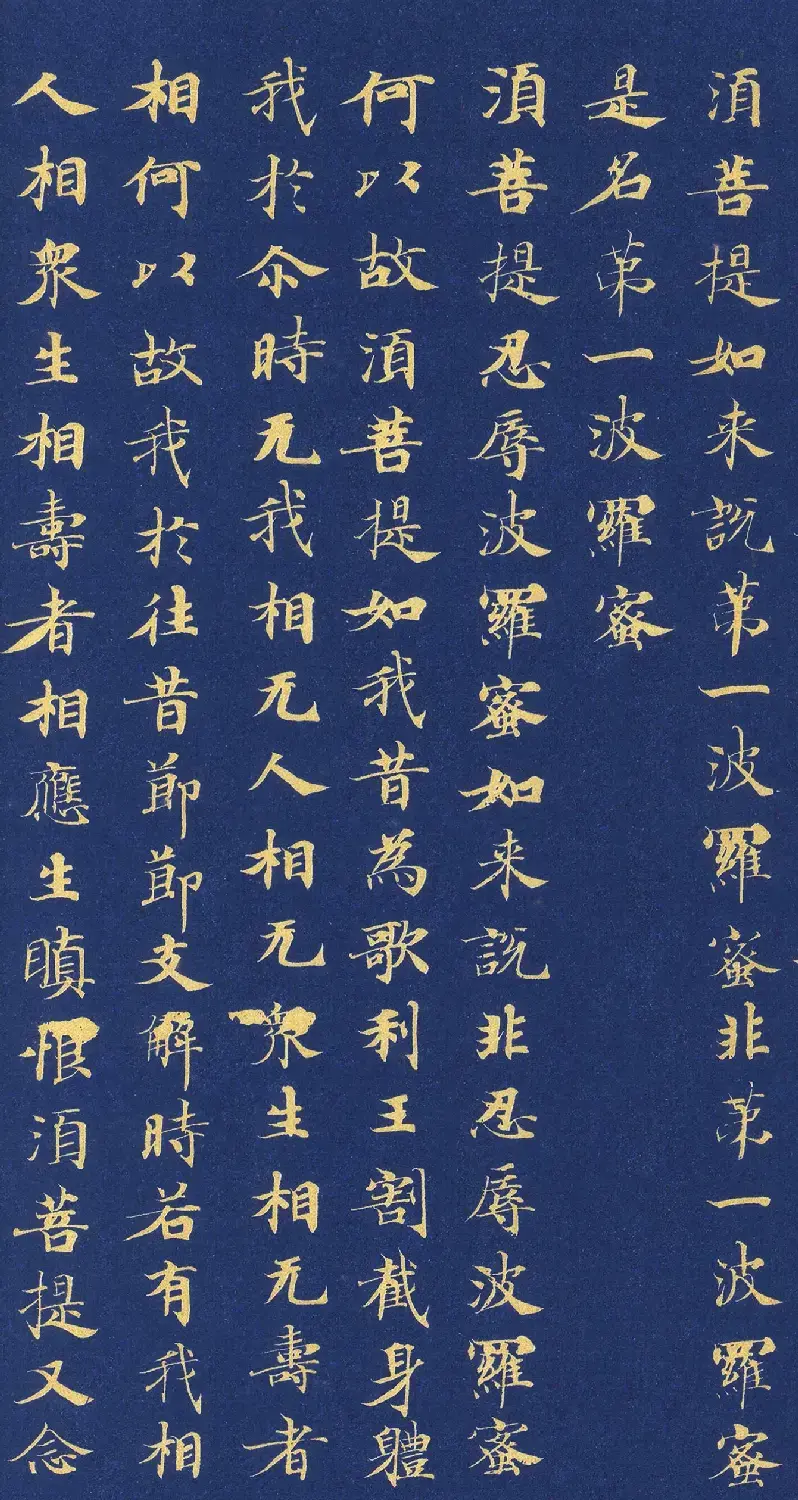 湏菩提如来說苐一波羅蜜非苐一波羅蜜
是名苐一波羅蜜
湏菩提忍辱波羅蜜如来說非忍辱波羅蜜
何以故湏菩提如我昔為歌利王割截身體
我於尒時无我相无人相无衆生相无壽者
相何以故我於往昔節節支解時若有我相
人相衆生相壽者相應生瞋恨湏菩提又念